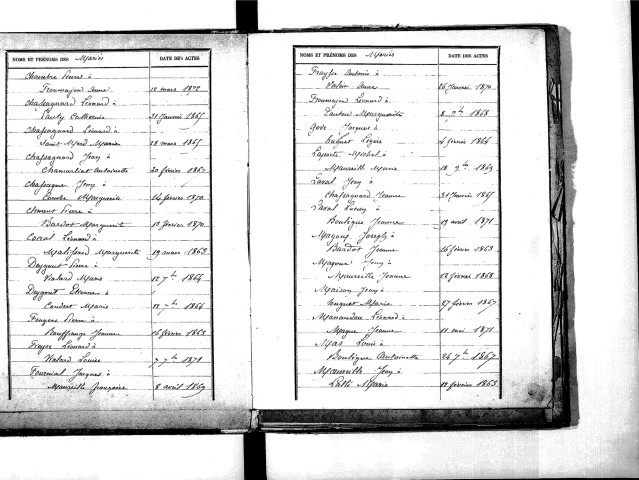 NOMS ET PRÉNOMS DES Mariés DATE DES ACTES
Chambre Pierre à
Froumajou Anne 10 mars 1872
Chassagnard Léonard à
Pauty Catherine 31 Janvier 1865
Chassagnard Léonard à
Saint Mard Marie 28 mars 1865
Chassagnard Jean à
Chamartiat Antoinette 20 février 1862
Chassagne Jean à
Combe Marguerite 14 février 1870
Clément Pierre à
Bardot Marguerite 13 février 1870
Corral Léonard à
Malissard Marguerite 19 mars 1863
Deyzout Pierre à
Valard Marie 12 7bre 1864
Deyzout Etienne à
Coudert Marie 12 7bre 1864
Feugeas Pierre à
Jeanne 16 février 1862
Léonard à
Valard Louise 7 7bre 1871
Fournial Jacques à
Maureille Françoise 8 avril 1869
NOMS ET PRÉNOMS DES Mariés DATE DES ACTES
Fraysse Antoine à
Valéry Anne 26 Janvier 1870
Froumajou Léonard à
Marguerite 8 7bre 1868
Gode Jacques à
Huguet 4 février 1866
Laporte Michel à
Maureille Marie 18 9bre 1869
Laval Jean à
Chassagnard Jeanne 31 Janvier 1865
Laval à
Boutique Jeanne 19 avril 1871
Magoux Joseph à
Bardot Jeanne 16 février 1863
Magoux Jean à
Maureille Jeanne 12 février 1868
Maison Jean à
Huguet Marie 27 février 1867
Léonard à
Magne Jeanne 11 mai 1871
Mas Louis à
Boutique Antoinette 26 7bre 1867
Maureille Jean à
Marie 12 février 1863